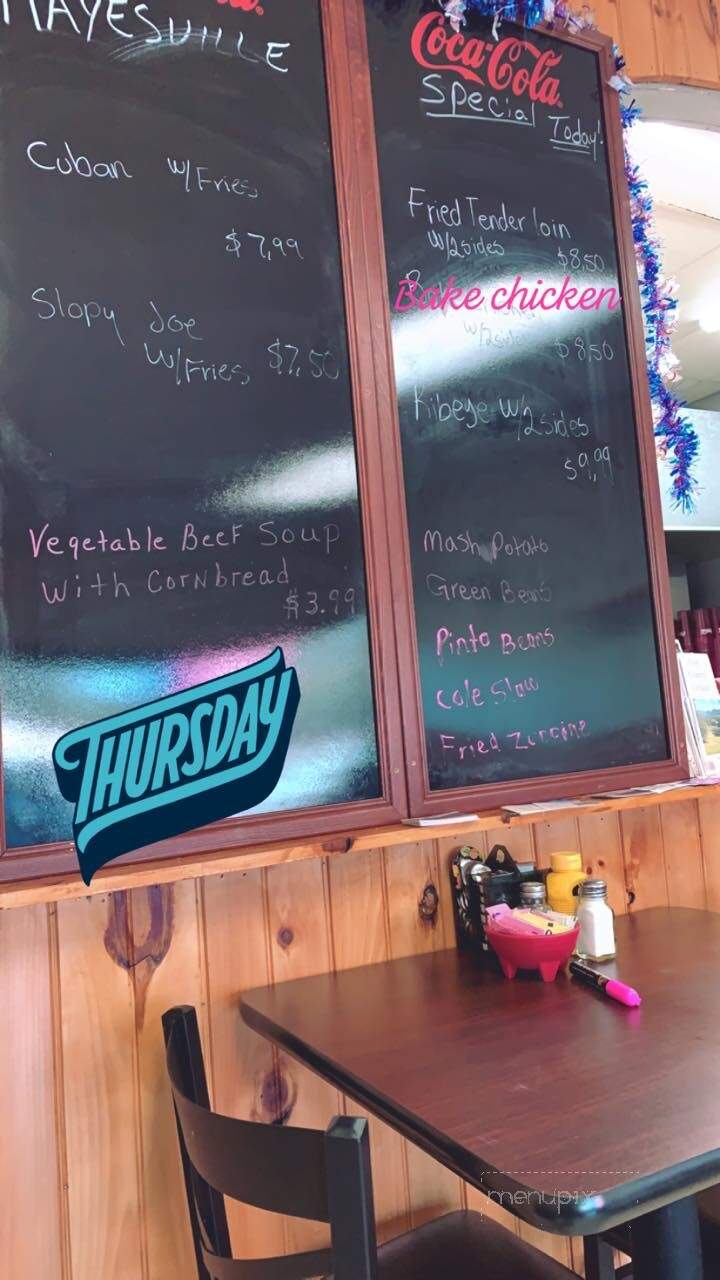 HAYESVILLE
Cuban w/Fries
$7,99
Slopy Joe
w/Fries $7,50
Vegetable Beef Soup
With Cornbread
$3.99
THURSDAY
Coca-Cola
Special
Today!
Fried Tender loin
w/2sides $8,50
Bake chicken
w/2side $8,50
Ribeye w/2sides
$9,99
Mash Potato
Green Beans
Pinto Beans
Cole Slaw
Fried
menupix